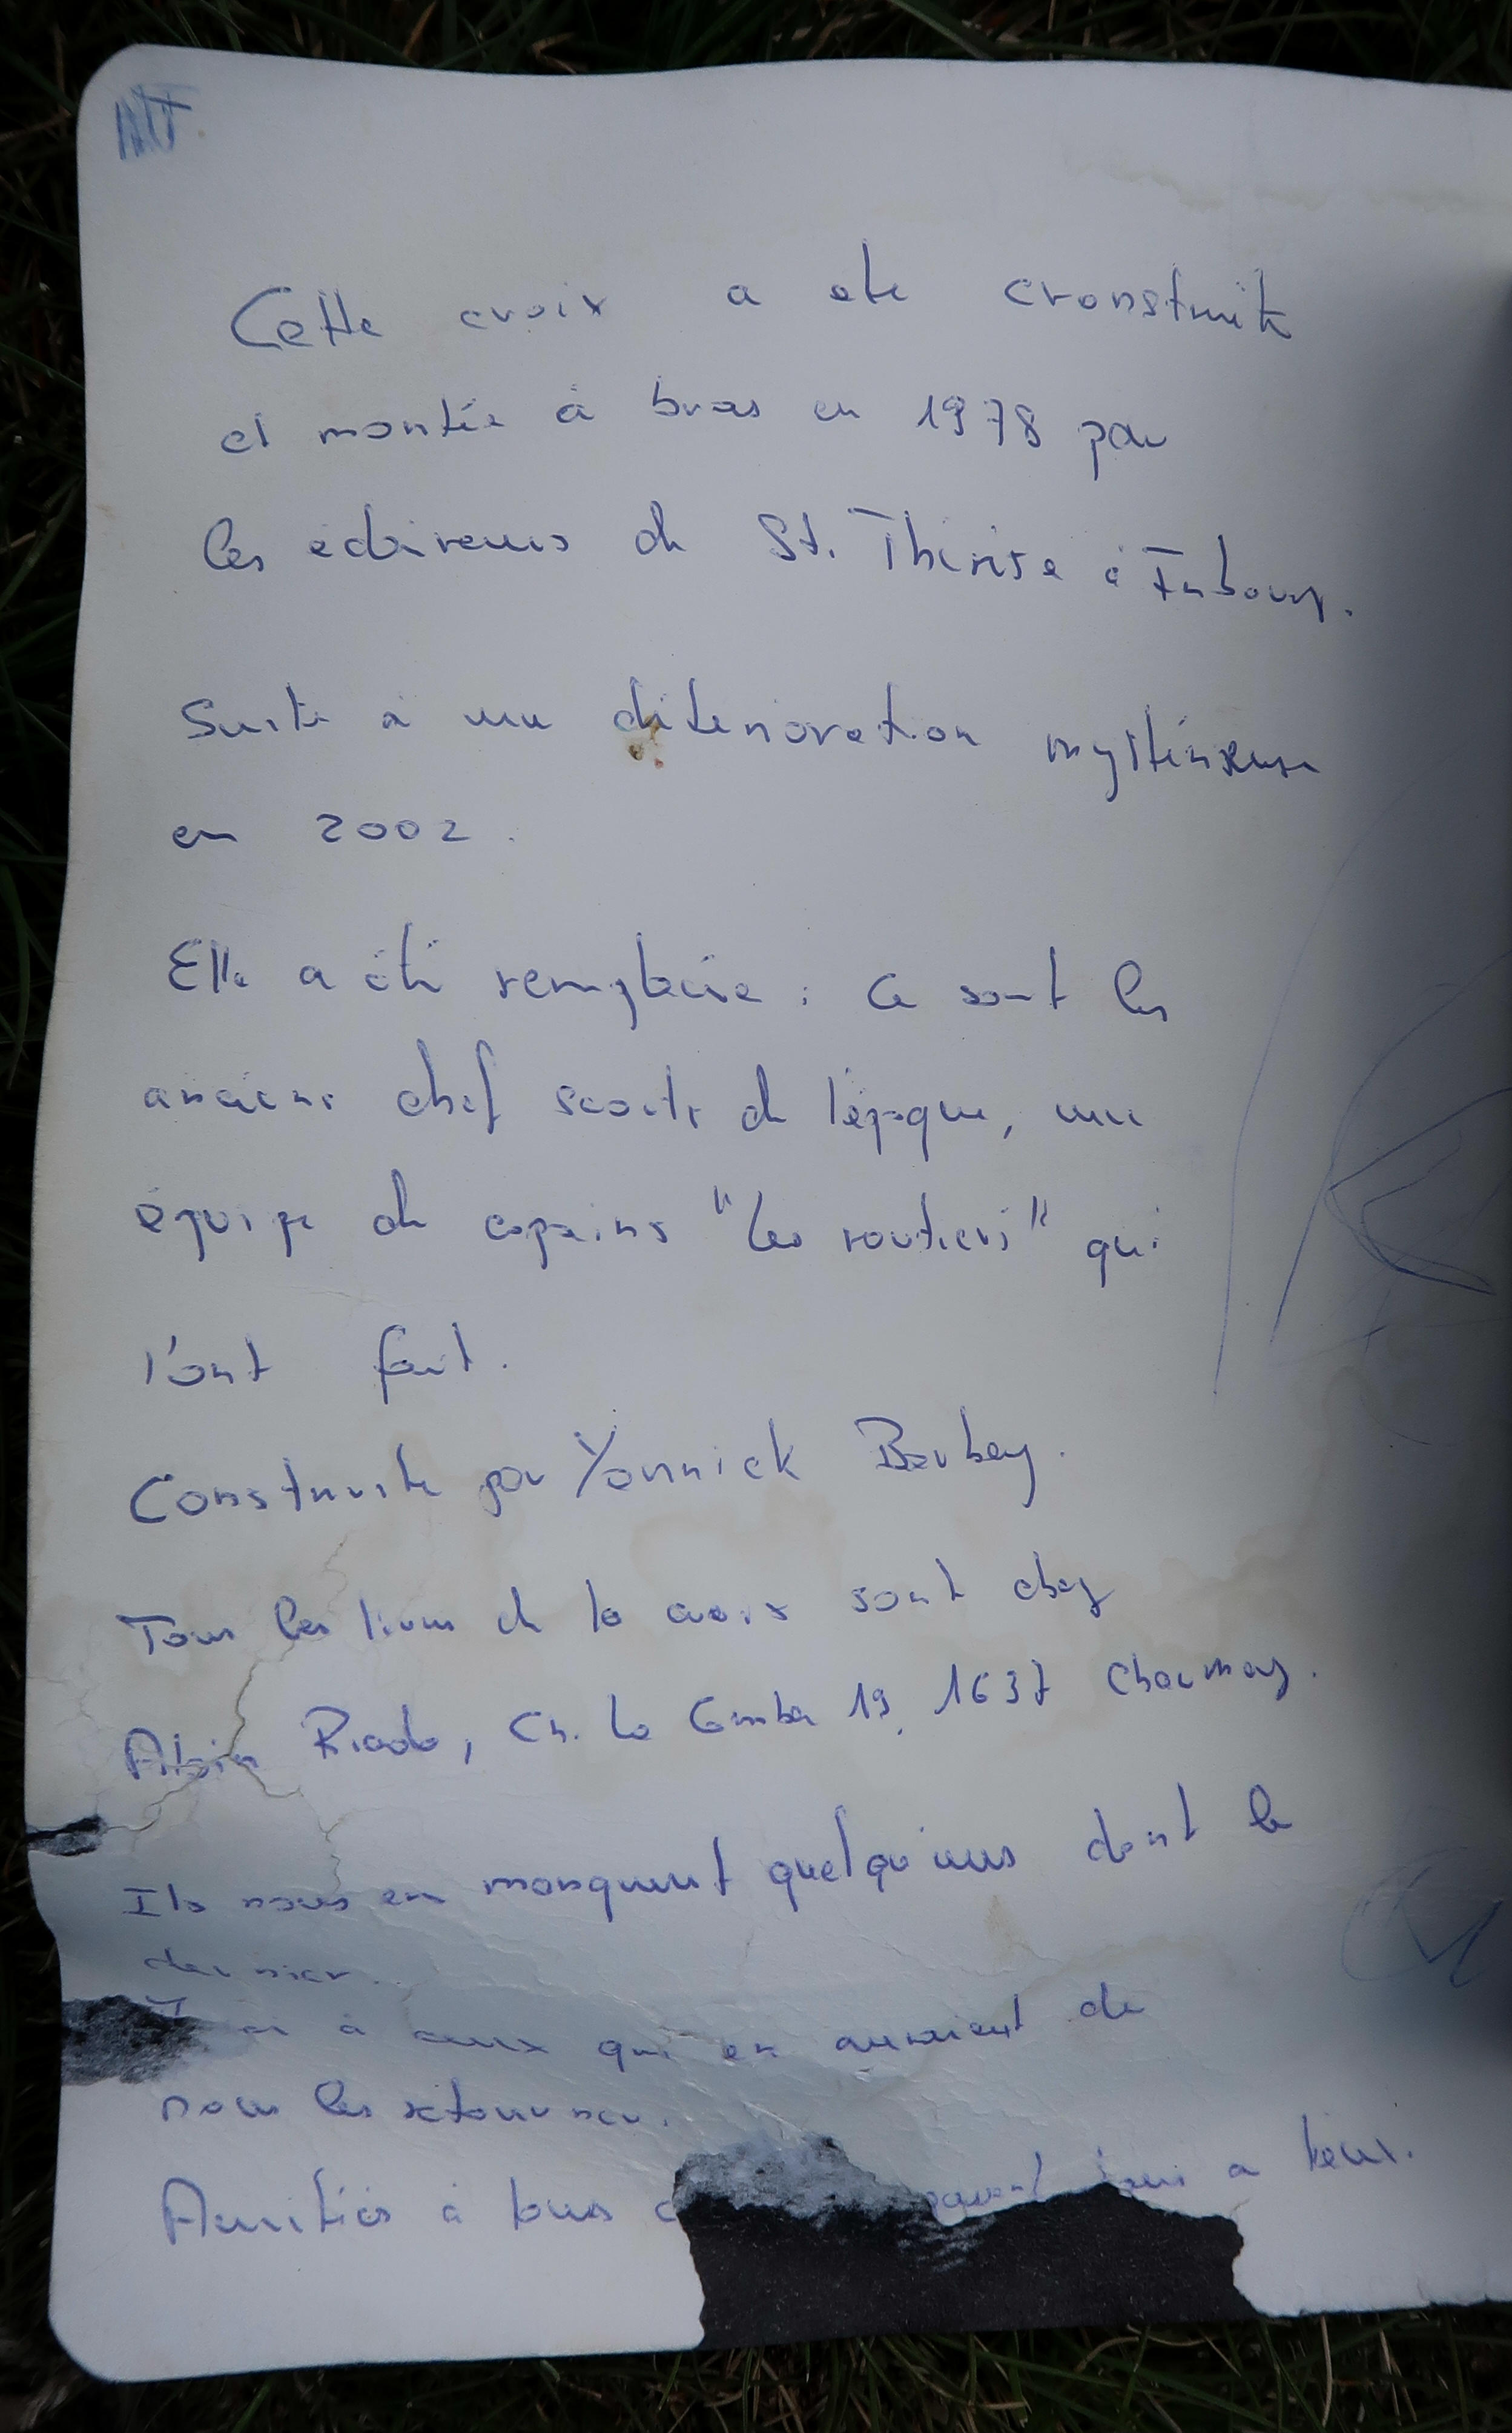 Cette croix a ete cronstruite
et montée à bras en 1978 par
les eclaireurs de St. Thérèse à Fribourg.
Suite à une déterioration mystérieuse
en 2002.
Elle a été remplacée : ce sont les
anciens chef scouts de l'époque, une
équipe de copains "les routiers" qui
l'ont fait.
Construite par Yannick Barbey.
Tous les livres de la croix sont chez
Albin Ch. la Comba 19, 1637 Charmey.
Ils nous en manquent quelqu'uns dont le
dernier.
à ceux qui en auraient de
nous les retourner.
Amitiés à tous